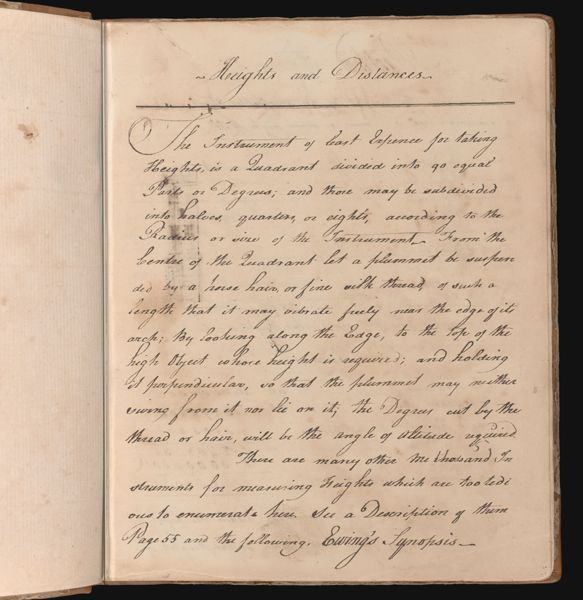 Heights and Distances
The Instrument of least Expence for taking
Heights, is a Quadrant divided into 90 equal
Parts or Degrees; and those may be subdivided
into halves, quarters, or eights, according to the
Radius or size of the Instrument. From the
Centre of the Quadrant let a plummet be suspen
ded by a horse hair, or fine silk thread, of such a
length that it may vibrate freely near the edge of its
arch: By looking along the Edge, to the top of the
high Object whose height is required; and holding
it perpendicular, so that the plummet may neither
swing from it nor lie on it; the Degrees cut by the
thread or hair, will be the angle of altitude required.
There are many other In
struments for measuring Heights which are too tedi
ous to enumerate here. See a Description of them
Page 55 and the following. Ewing's Synopsis